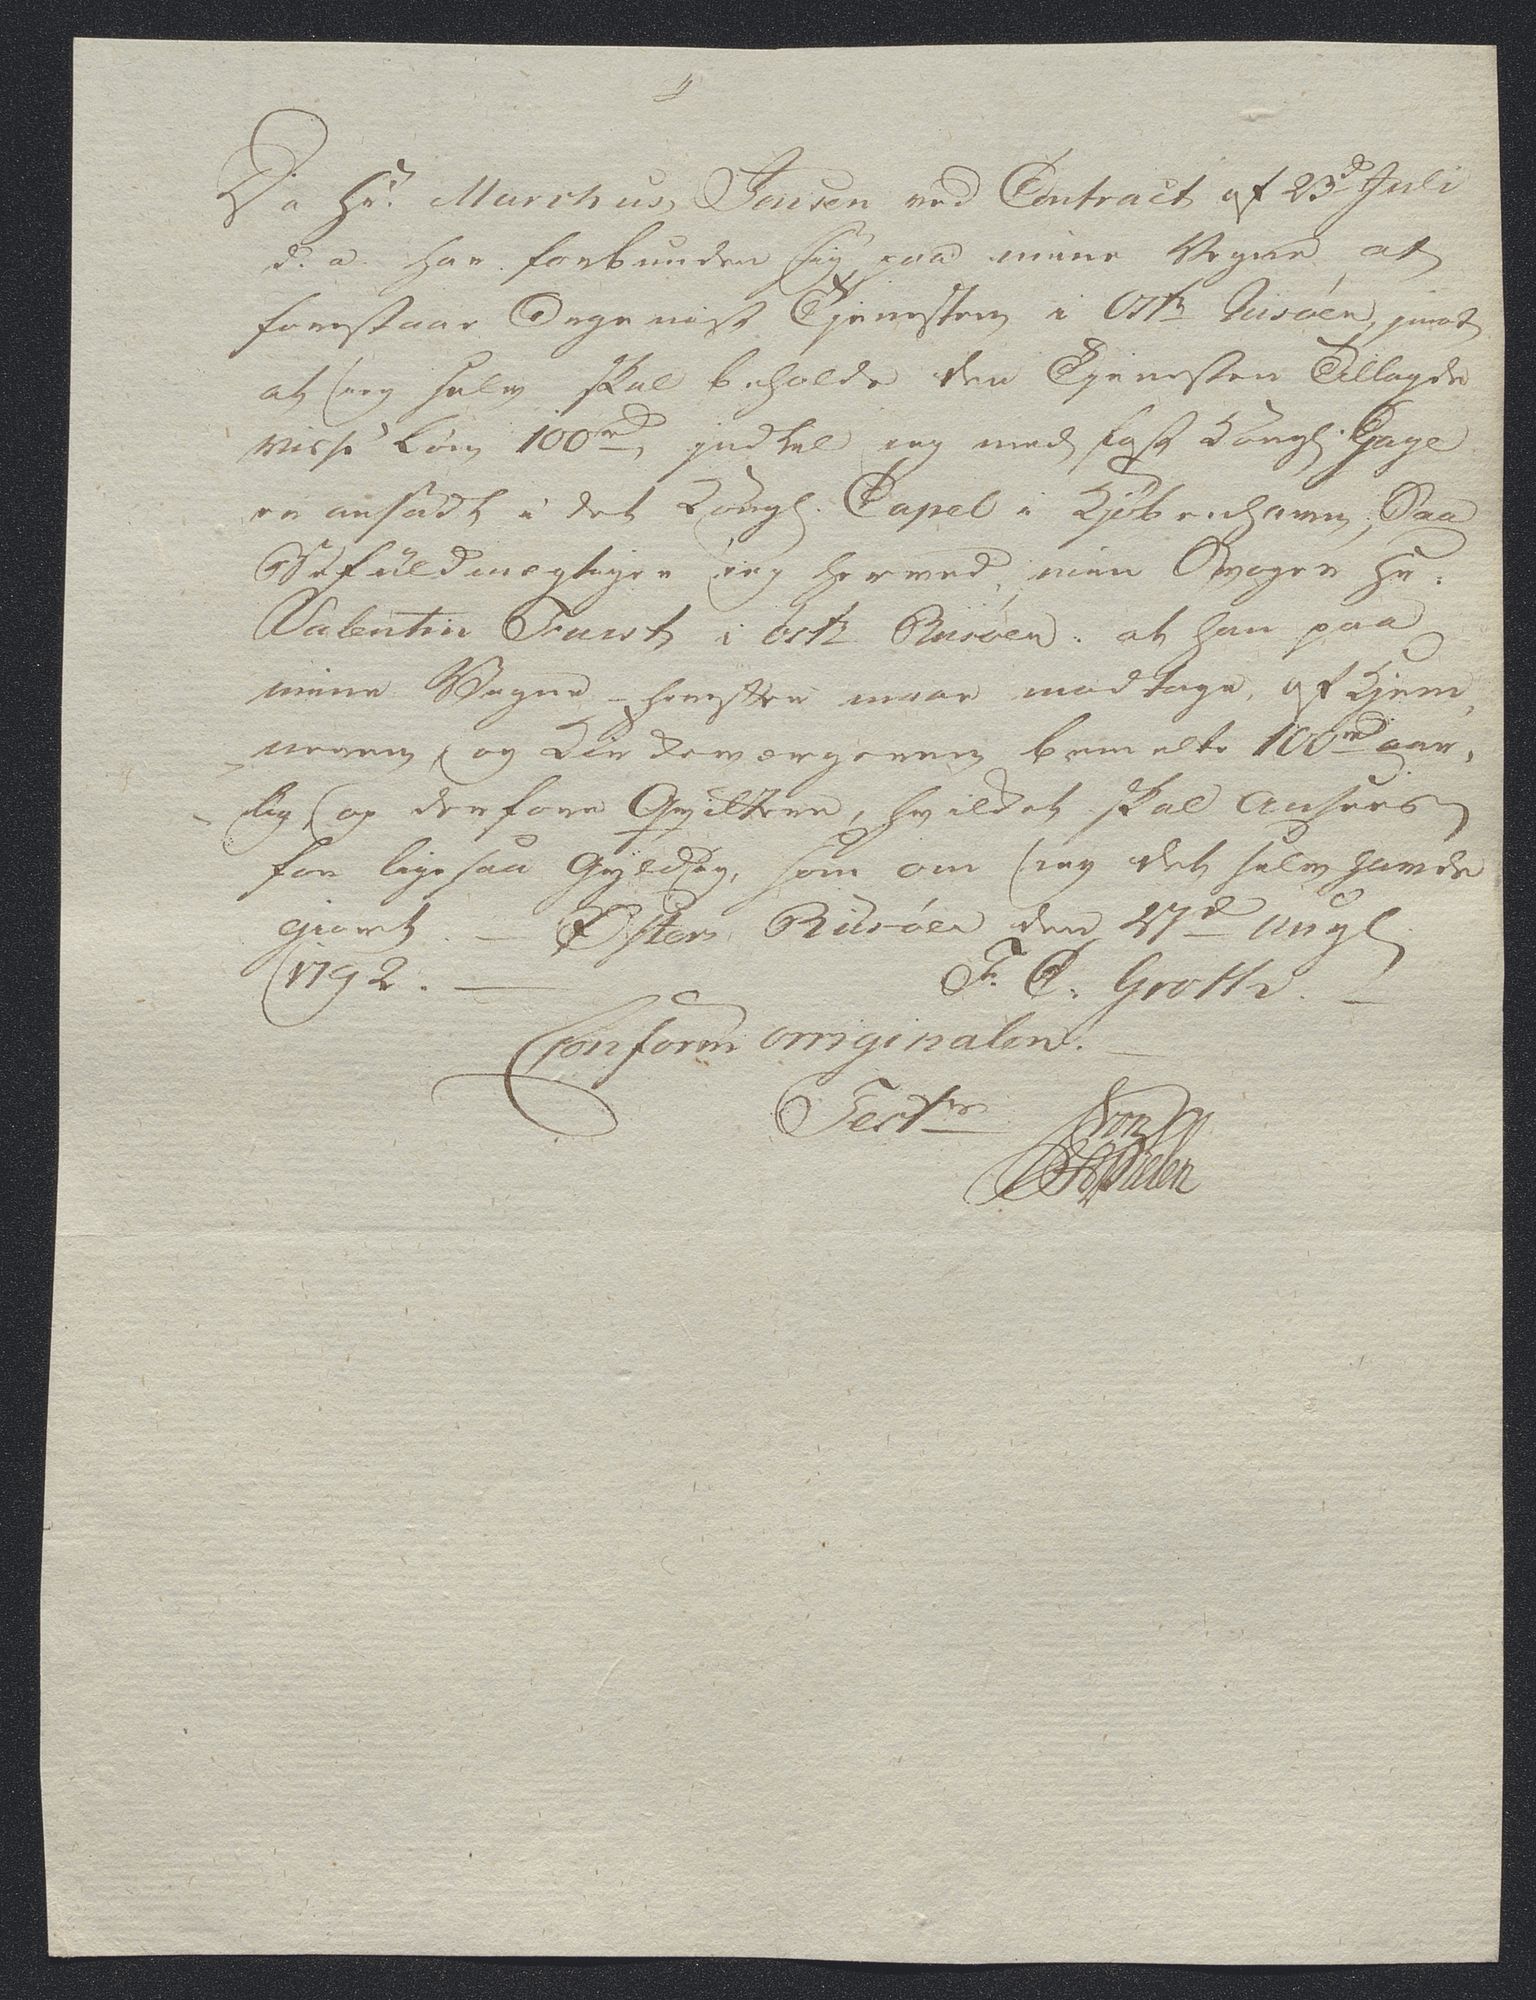 Da Hr. Marchus Jensen ved Contract af 23d Juli
d. a. har forbunden sig paa mine Vegne at
forestaae Organist Tjenesten i Ostr Riisöer, imod
at jeg selv skal beholde den Tjenesten Tillagde
visse Lön 100rd, indtil jeg med fast Kongl. Gage
er ansadt i det Kongl. Capel i Kjöbenhavn; Saa
Befuldmægtiger jeg herved, min Svoger Hr.
Valentin Furst i östr Riisöer. at han paa
mine Vegne herefter maae modtage, af Kjem-
neren, og Kirkeværgeren bemelte 100rd aar-
lig, og derfore Qvittere, hvilket skal ansees
for ligesaa Gyldig, som om jeg det selv havde
giort. — Öster Riisöer den 27d Augl
1792. — F. C. Groth. —
Conform originalen. —
Tester